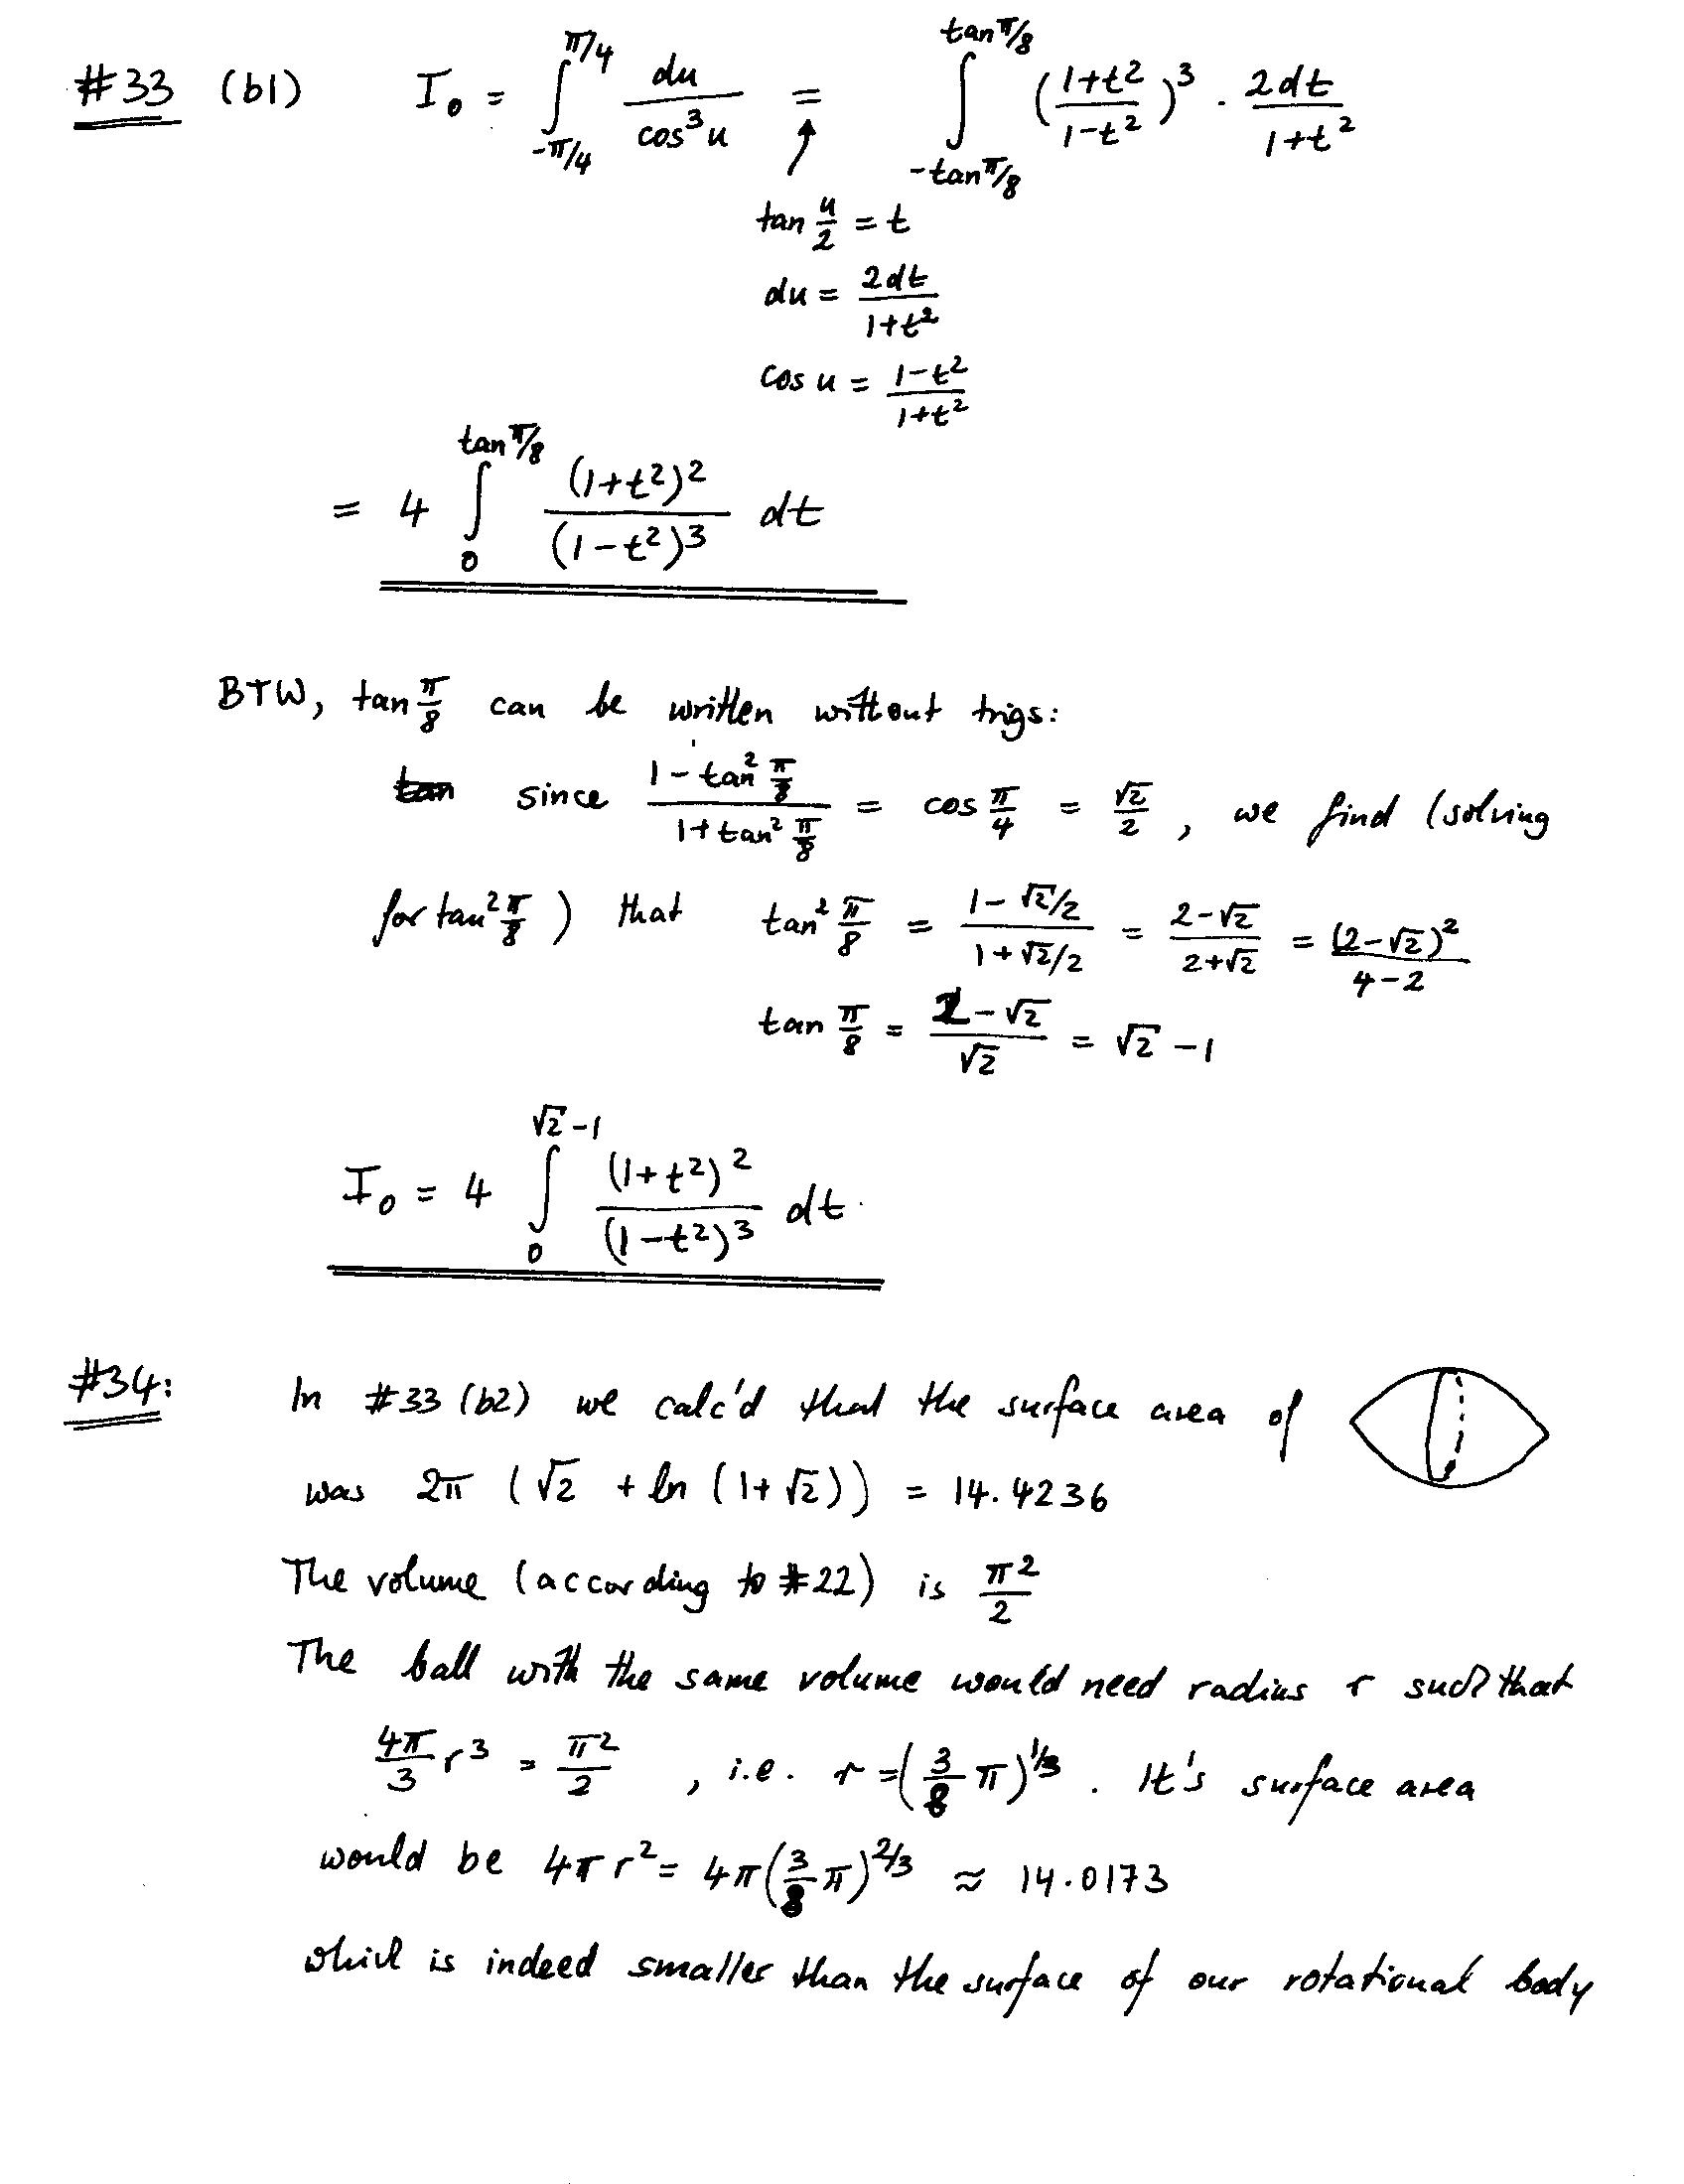 #33 (b1) I₀ = ∫_{-π/4}^{π/4} du/cos³u = ∫_{-tan π/8}^{tan π/8} ((1+t²)/(1-t²))³ · 2dt/(1+t²)
↑
tan u/2 = t
du = 2dt/(1+t²)
cos u = (1-t²)/(1+t²)
= 4 ∫_0^{tan π/8} (1+t²)²/(1-t²)³ dt
BTW, tan π/8 can be written without trigs:
~~tan~~ since (1-tan² π/8)/(1+tan² π/8) = cos π/4 = √2/2, we find (solving
for tan² π/8) that tan² π/8 = (1-√2/2)/(1+√2/2) = (2-√2)/(2+√2) = (2-√2)²/(4-2)
tan π/8 = (2-√2)/√2 = √2 -1
I₀ = 4 ∫_0^{√2-1} (1+t²)²/(1-t²)³ dt
#34: In #33 (b2) we calc'd that the surface area of
was 2π (√2 + ln (1+√2)) = 14.4236
The volume (according to #22) is π²/2
The ball with the same volume would need radius r such that
4π/3 r³ = π²/2, i.e. r = (3/8 π)^{1/3}. It's surface area
would be 4πr² = 4π(3/8 π)^{2/3} ≈ 14.0173
which is indeed smaller than the surface of our rotational body